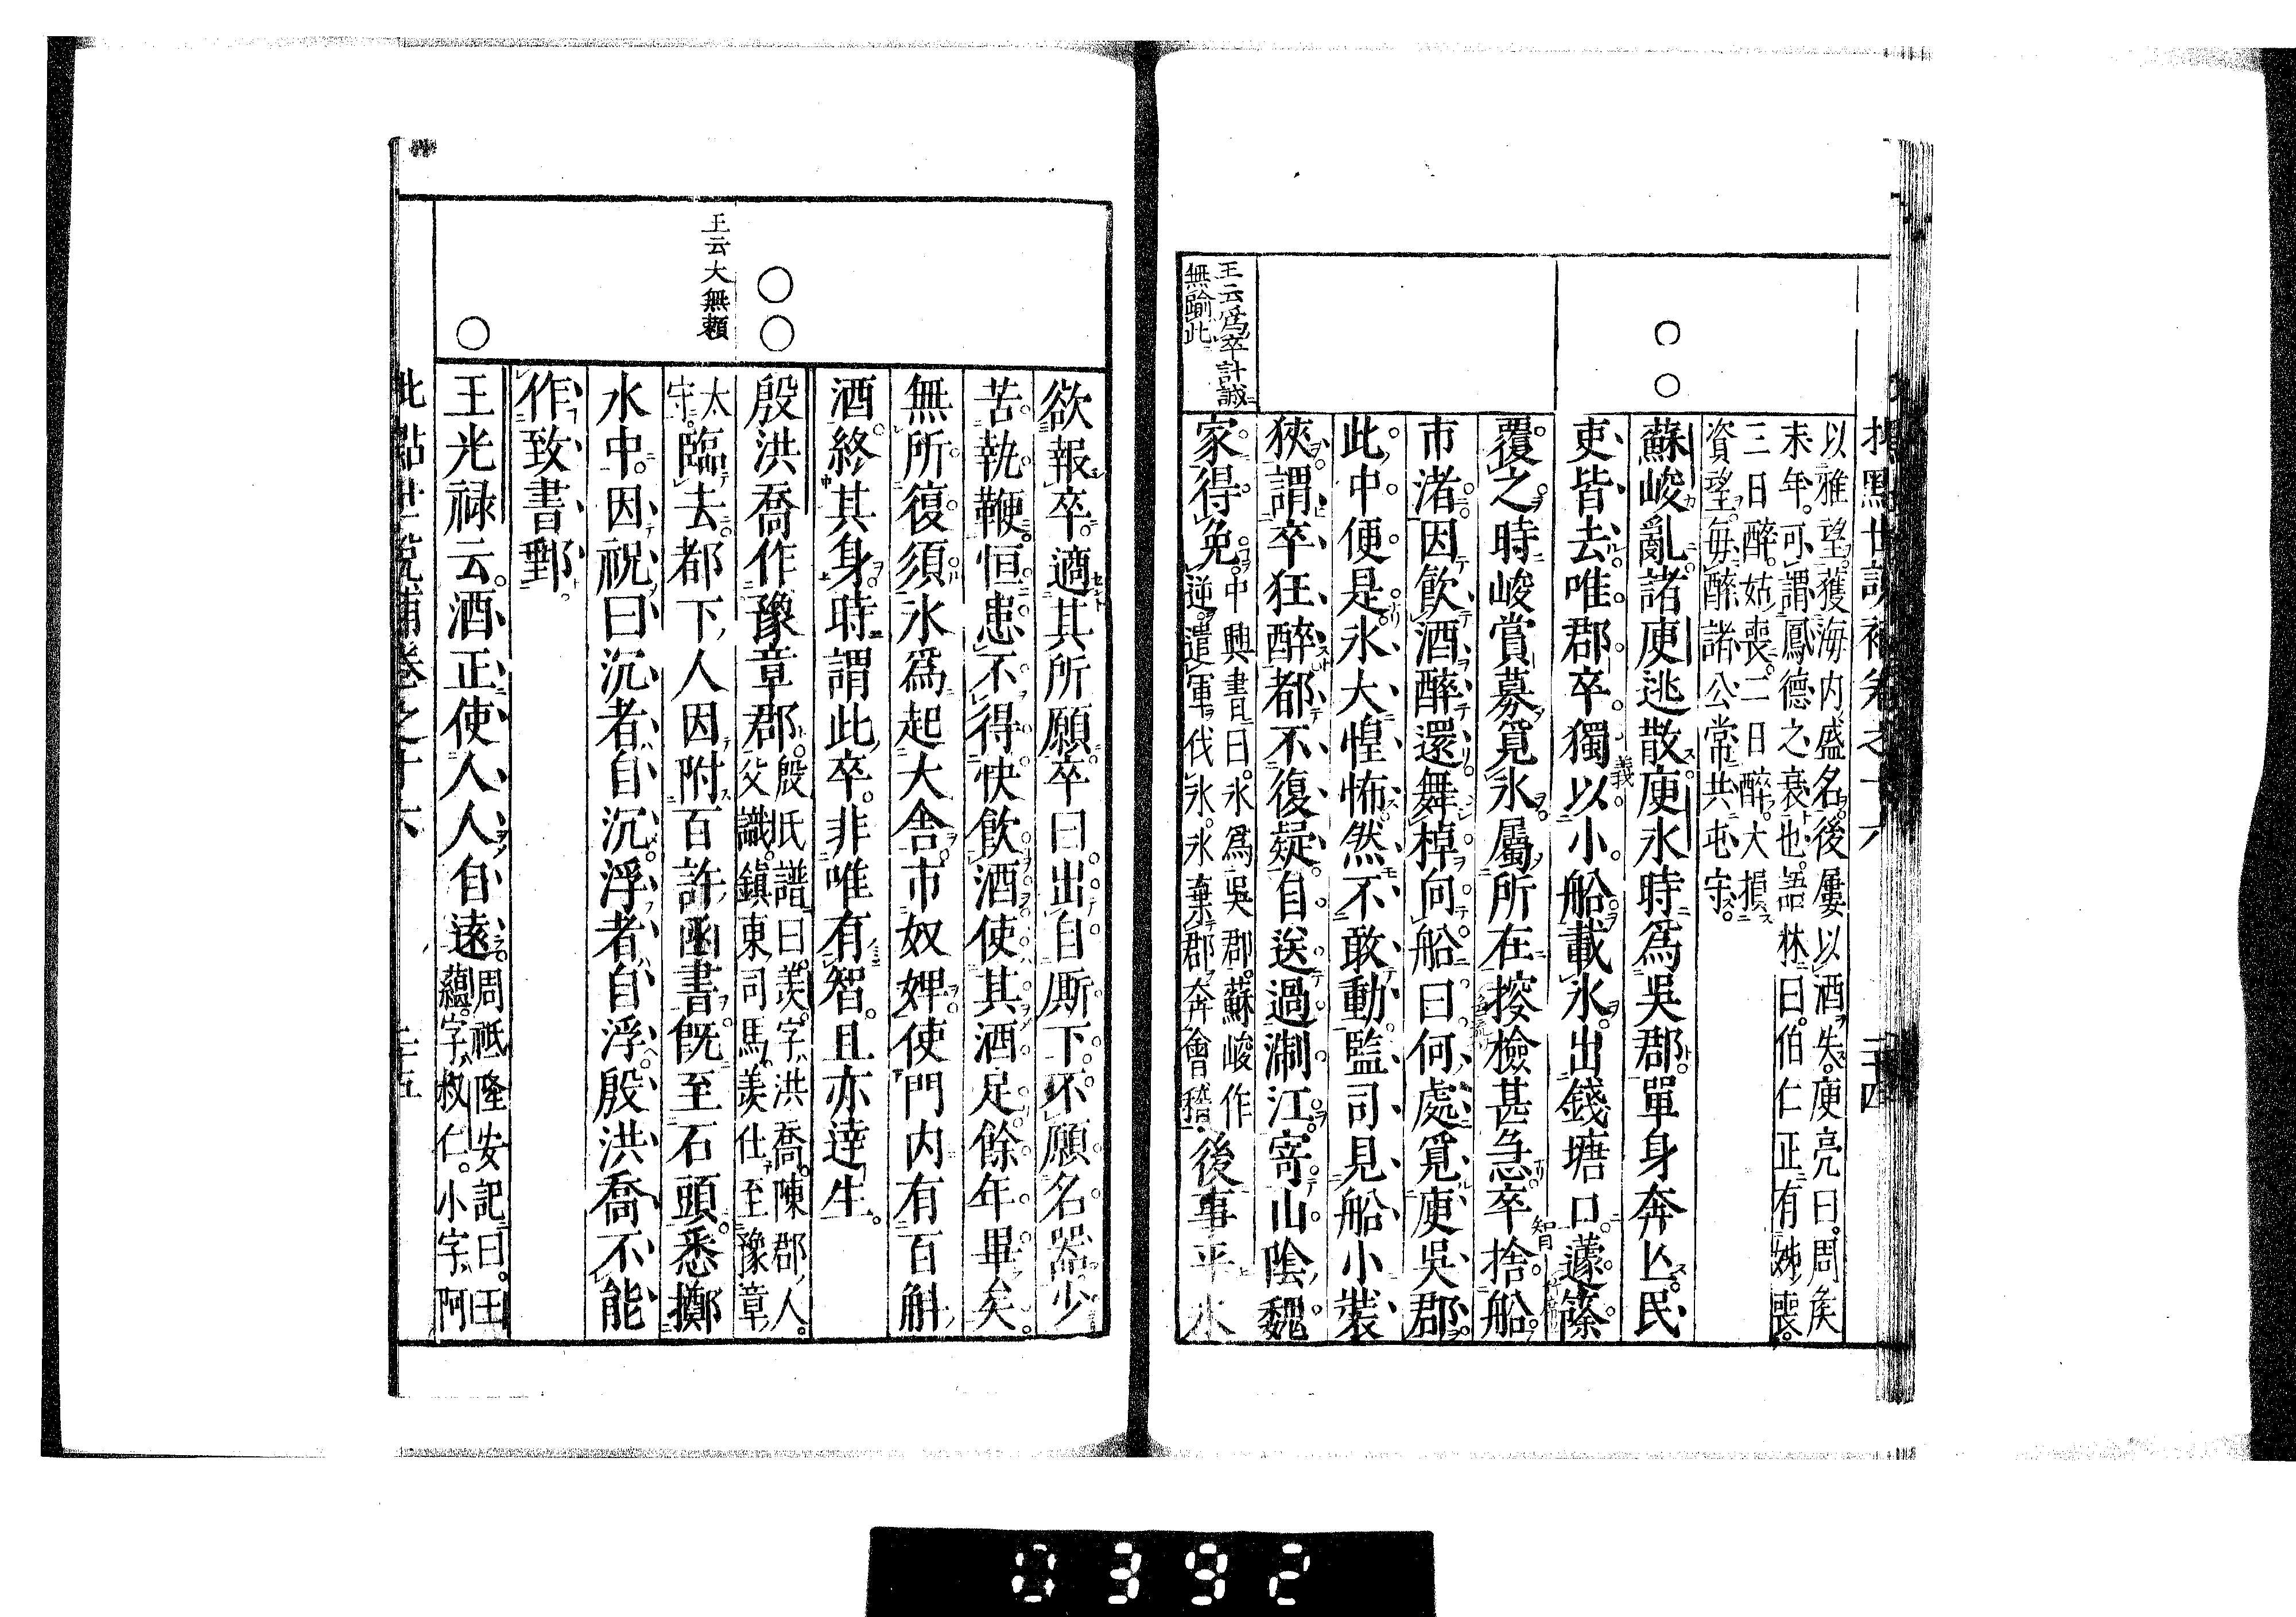 批點世說補卷之十六 二十四
以雅望獲海内盛名後屢以酒失庾亮曰周侯
末年可謂鳳德之衰也語林曰伯仁正有姊喪
三日醉姑喪二日醉大損
資望毎醉諸公常共屯守
蘇峻亂諸庾逃散庾氷時爲吳郡單身奔亾民
吏皆去唯郡卒獨以小船載氷出錢塘口蘧篨
覆之時峻賞募覓氷屬所在搜檢甚急卒捨船
市渚因飲酒醉還舞棹向船曰何處覓庾吳郡
此中便是氷大惶怖然不敢動監司見船小裝
狹謂卒狂醉都不復疑自送過淛江寄山陰魏
王云爲卒計誠
無踰此
家得免中興書曰氷爲吳郡蘇峻作
逆遣軍伐氷氷棄郡奔會稽後事平氷
欲報卒適其所願卒曰出自厮下不願名器少
苦執鞭恒患不得快飲酒使其酒足餘年畢矣
無所復須氷爲起大舍市奴婢使門内有百斛
酒終其身時謂此卒非唯有智且亦達生
殷洪喬作豫章郡殷氏譜曰羨字洪喬陳郡人
父識鎮東司馬羨仕至豫章
王云大無賴
太
守臨去都下人因附百許函書旣至石頭悉擲
水中因祝曰沉者自沉浮者自浮殷洪喬不能
作致書郵
王光祿云酒正使人人自遠周祇隆安記曰王
蘊字叔仁小字阿
批點世說補卷之十六 二十五
0392